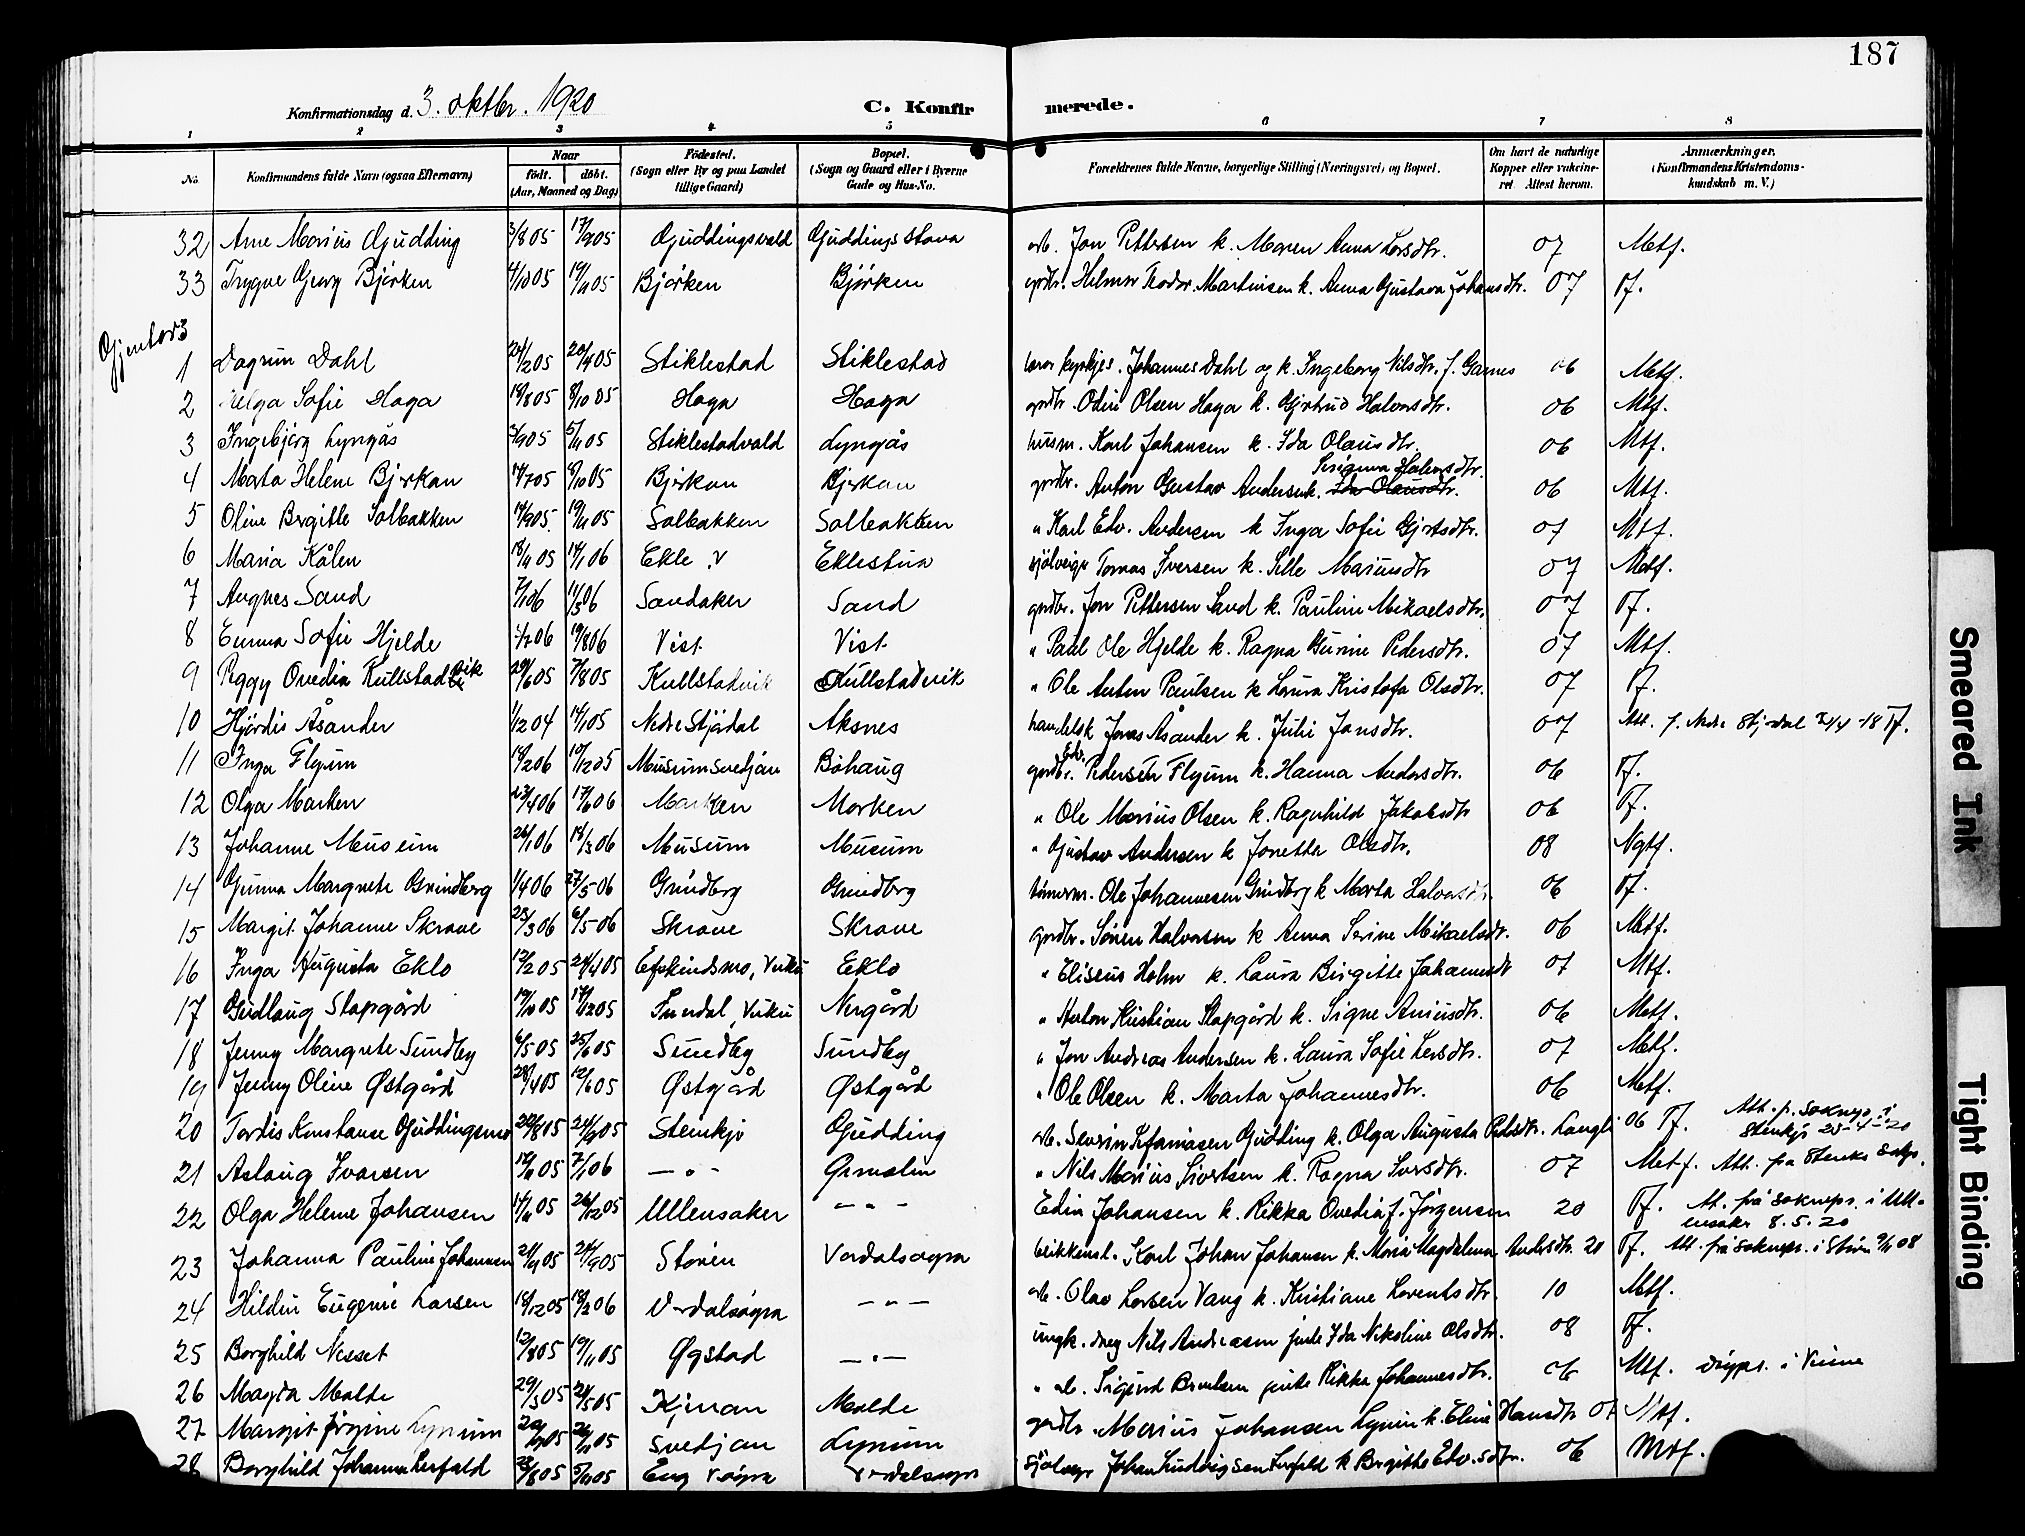 187
Konfirmationsdag d. 3. oktbr. 1920 C. Konfirmerede.
1 2 3 4 5 6 7 8
No. Konfirmandens fulde Navn (ogsaa Efternavn) Naar født. døbt. (Aar, Maaned og Dag) Födested. (Sogn eller By og paa Landet tillige Gaard) Bopæl. (Sogn og Gaard eller i Byerne Gade og Hus-No. Forældrenes fulde Navne, borgerlige Stilling (Næringsvei) og Bopæl. Om havt de naturlige Kopper eller vaccineret Attest herom. Anmærkninger. (Konfirmandens Kristendomskundskab m. V.)
32 Arne Marius Gjudding 3/8 05 17/9 05 Gjuddingsvald Gjuddingsstava arb. Jon Pettersen k. Maren Anna Larsdtr. 07 Mtf.
33 Trygve Georg Björken 4/10 05 19/11 05 Björken Björken grdbr. Helmer Teodor Martinsen k. Anna Gustava Johansdtr. 07 Tf.
Gjentor
1 Dagrun Dahl 24/2 05 20/4 05 Stiklestad Stiklestad Johannes Dahl og k. Ingeborg Nilsdtr. f. Garnes 06 Mtf.
2 Helga Sofie Haga 18/8 05 8/10 05 Haga Haga grdbr. Odin Olsen Haga k. Gjertrud Halvorsdtr. 06 Mtf.
3 Ingebjörg Lyngås 3/9 05 5/11 05 Stiklestadvald Lyngås husm. Karl Johansen k. Ida Olausdtr. 06 Mtf.
4 Marta Helene Björkan 14/7 05 8/10 05 Björkan Björkan grdbr. Anton Gustav Andersen k. Ida Olausdtr. Halvorsdtr. 06 Mtf.
5 Oline Brgitte Solbakken 14/9 05 19/11 05 Solbakken Solbakken " Karl Edv. Andersen k Inga Sofie Gjertsdtr. 07 Mtf.
6 Maria Kålen 18/11 05 14/1 06 Ekle v Eklestua sjölveigr Tomas Iversen k. Mariusdtr 07 Mtf.
7 Augnes Sand 7/1 06 11/3 06 Sandaker Sand grdbr. Jon Pettersen Sand k. Pauline Mikaelsdtr. 07 Tf.
8 Emma Sofie Hjelde 06 19/8 06 Vist Vist " Paul Ole Hjelde k. Ragna Gurine Pedersdtr. 07 Mtf.
9 Peggy Ovedia Kulstadvik 29/6 05 7/8 05 Kulstadvik Kulstadvik " Ole Anton Paulsen k Laura Kristofa Olsdtr. 07 Tf.
10 Hjördis Åsander 1/12 04 14/1 05 Nedre Stjördal Aksnes handelsk Jonas Åsander k. Julie Jansdtr. 07 Att. f. Nedre Stjördal -18 Tf.
11 Inga Flyum 18/2 06 Musumsvedjan Böhaug grdbr. Edv. Pedersen Flyum k. Hanna Andersdtr. 06 Tf.
12 Olga Marken 23/4 06 17/6 06 Marken Marken " Ole Marius Olsen k. Ragnhild Jakobsdtr 06 Tf.
13 Johanne Museum 26/1 06 18/3 06 Musum Musum " Gustav Andersen k Jonetta Olsdtr. 08 Ngtf.
14 Gunna Margrete Grindberg 1/4 06 27/5 06 Grindberg Grindberg tömerm. Ole Johannesen Grindberg k Marta Halvorsdtr. 06 Tf.
15 Margit Johanne Skrove 25/3 06 6/5 06 Skrove Skrove grdbr. Sören Halvorsen k Anna Serine Mikaelsdtr. 06 Mtf.
16 Inga Augusta Eklo 12/2 05 24/4 05 Vuku Eklo " Eliseus Holm k. Laura Birgitte Johannesdtr 07 Mtf.
17 Gudlaug Slapgård 19/10 05 17/12 05 Vuku Nergård " Anton Kristian Slapgård k. Signe Aniusdtr. 06 Mtf.
18 Jenny Margrete Sundby 6/5 05 25/6 05 Sundby Sundby " Jon Andreas Andersen k. Laura Sofie Larsdtr. 07 Mtf.
19 Jenny Oline Østgård 28/4 05 12/6 05 Østgård Østgård " Ole Olsen k. Marta Johannesdtr. 06 Mtf.
20 Tordis Konstanse Gjuddingsmo 20/8 05 24/9 05 Stenkjr Gjudding arb. Severin Gjudding k. Olga Augusta Pedersdtr. 06 Tf. Att. p. soknepr. i Stenkjr 25-4-20
21 Aslaug Ivarsen 12/11 05 7/1 06 — " — " Nils Marius Sivertsen k. Ragna Larsdtr. 07 Mtf. Att. fra Stenkr sokpr.
22 Olga Helene Johansen 14/11 05 26/12 05 Ullensaker — " — Edin Johansen k. Rikka Ovedia f. Jörgensen 20 Tf. At. frå soknepr. i Ullensaker 8.5.20
23 Johanna Pauline Johansen 05 24/9 05 Stören Verdalsøgra blikkensl. Karl Johan Johansen k. Maria Magdalena Andersdtr. 20 Tf. Att. frå soknepr. i Stören 08
24 Hildur Eugenie Larsen 18/12 05 18/2 06 Verdalsøgra — " — arb. Olav Larsen Vang k. Kristiane Lorentsdtr. 10 Mtf.
25 Borghild Nesset 12/8 05 19/11 05 Øgstad — " — ungk. dreg Nils Andreasen jente Ida Nikoline Olsdtr. 08 Tf.
26 Magda Molde 29/3 05 21/5 05 Kjæran Molde " arb. Sigurd jente Rikka Johannesdtr. 06 Mtf. døypt i Vinne
27 Margit Jörgine Lynum 05 05 Svedjan Lynum grdbr. Marius Johansen Lynum k. Eline Hansdtr 07 Mtf.
28 Borghild Johanna Lerfald 23/8 05 5/11 05 Eng v. øgra Verdalsøgra sjölveigr Johan Ludvigsen Lerfald k Birgitte Edv.sdtr. 06 Mtf.
Smeared Ink
Tight Binding